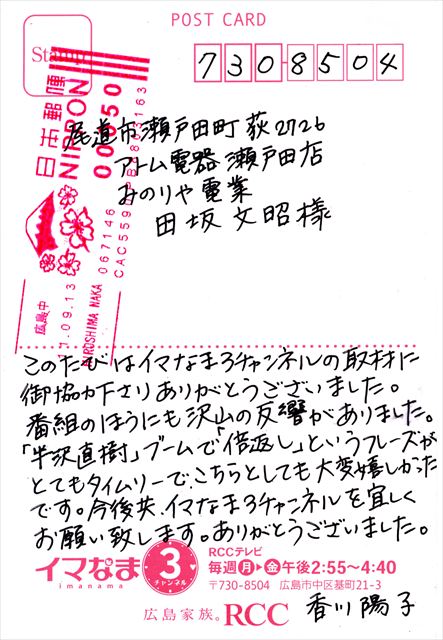 POST CARD
Stamp
7308504
日本郵便
NIPPON
00050
広島中
HIROSHIMA NAKA 067146
尾道市瀬戸田町荻2726
アトム電器瀬戸田店
みのりや電業
田坂文昭様
このたびはイマなま3チャンネルの取材に
御協力下さりありがとうございました。
番組のほうにも沢山の反響がありました。
「半沢直樹」ブームで「倍返し」というフレーズが
とてもタイムリーで、こちらとしても大変嬉しかった
です。今後共、イマなま3チャンネルを宜しく
お願い致します。ありがとうございました。
イマなま3チャンネル
imanama
RCCテレビ
毎週月▶金午後2:55〜4:40
〒730-8504 広島市中区基町21-3
広島家族。RCC
香川陽子